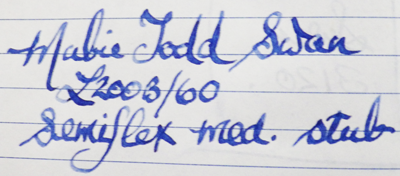 Mabie Todd Swan
L2003/60
Semiflex med. stub